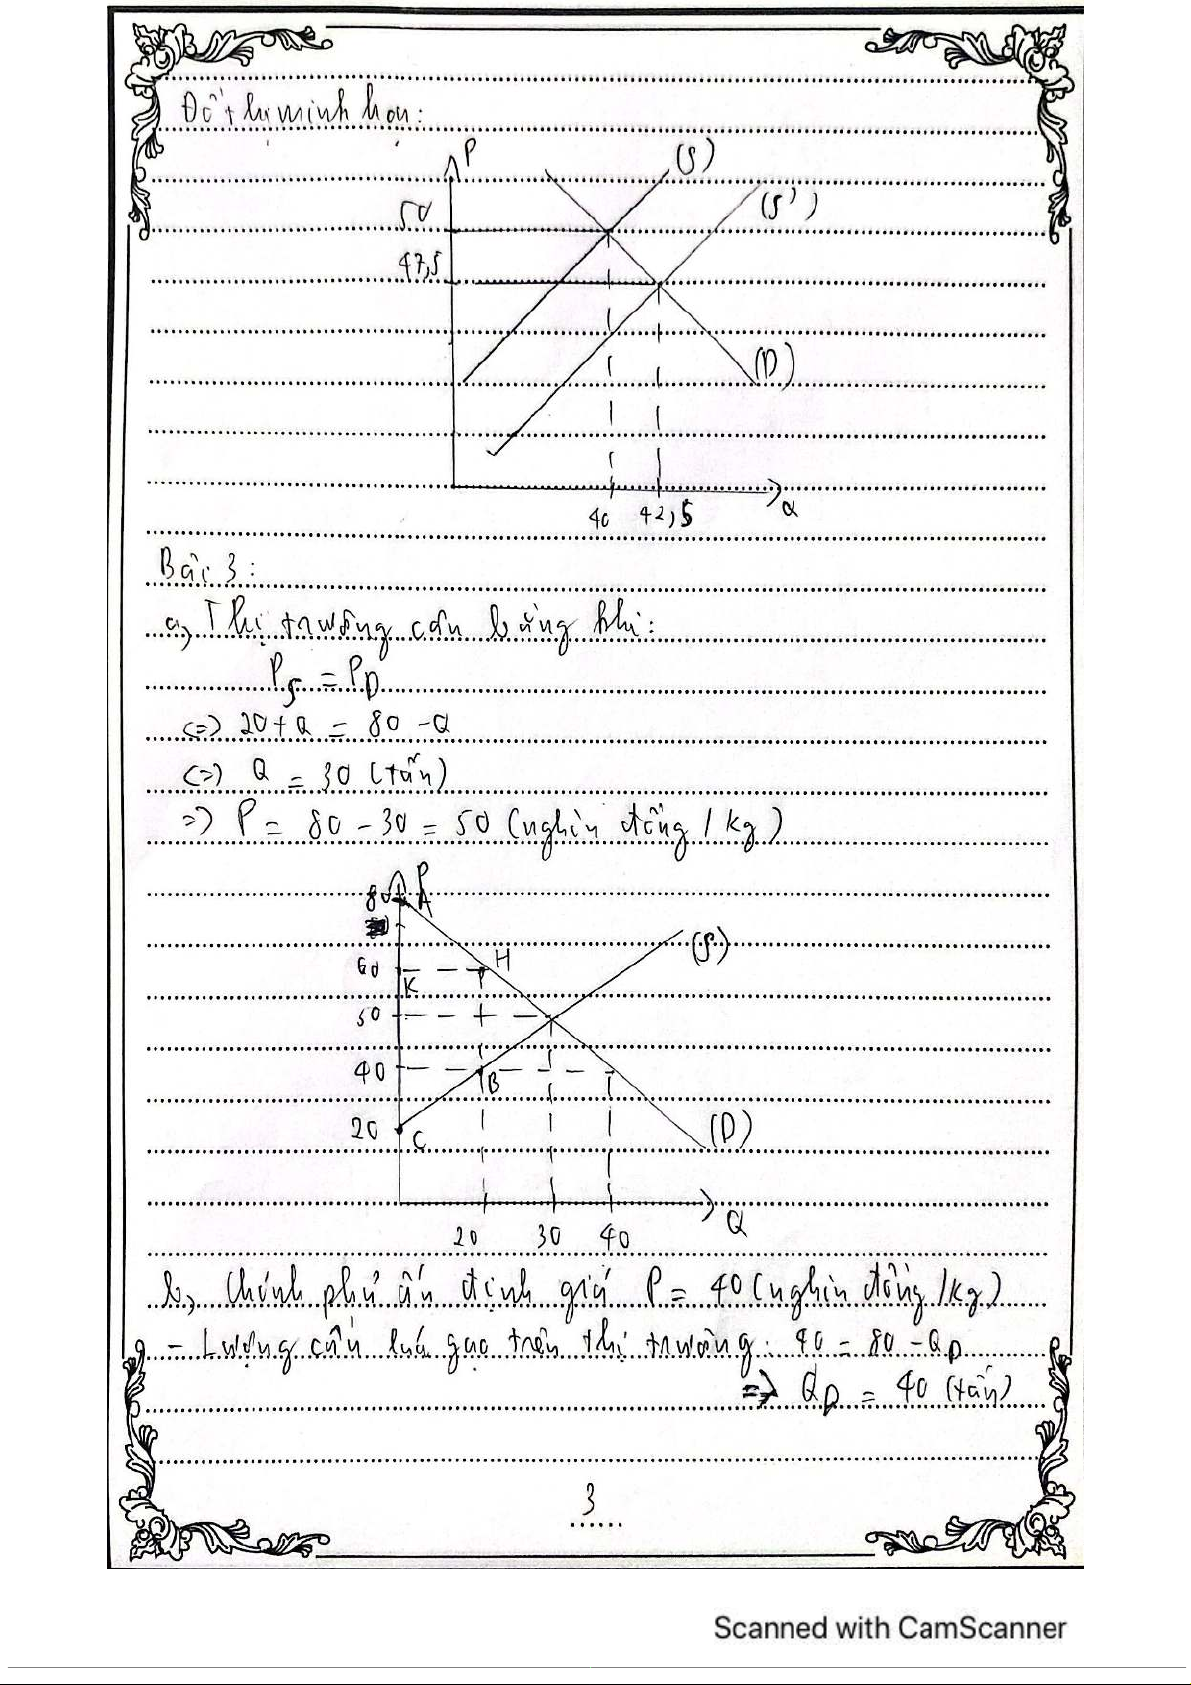 Đồ thị minh họa:
P
(S)
(S')
50
47,5
(D)
40 42,5 Q
Bài 3:
a, Thị trường cân bằng khi:
P_S = P_D
<=> 20 + Q = 80 - Q
<=> Q = 30 (tấn)
=> P = 80 - 30 = 50 (nghìn đồng / kg)
80 A P
(S)
60 K H
50
40 B
20 C
(D)
20 30 40 Q
b, Chính phủ ấn định giá P = 40 (nghìn đồng /kg)
- Lượng cầu lúa gạo trên thị trường: 40 = 80 - Q_D
=> Q_D = 40 (tấn)
3
Scanned with CamScanner